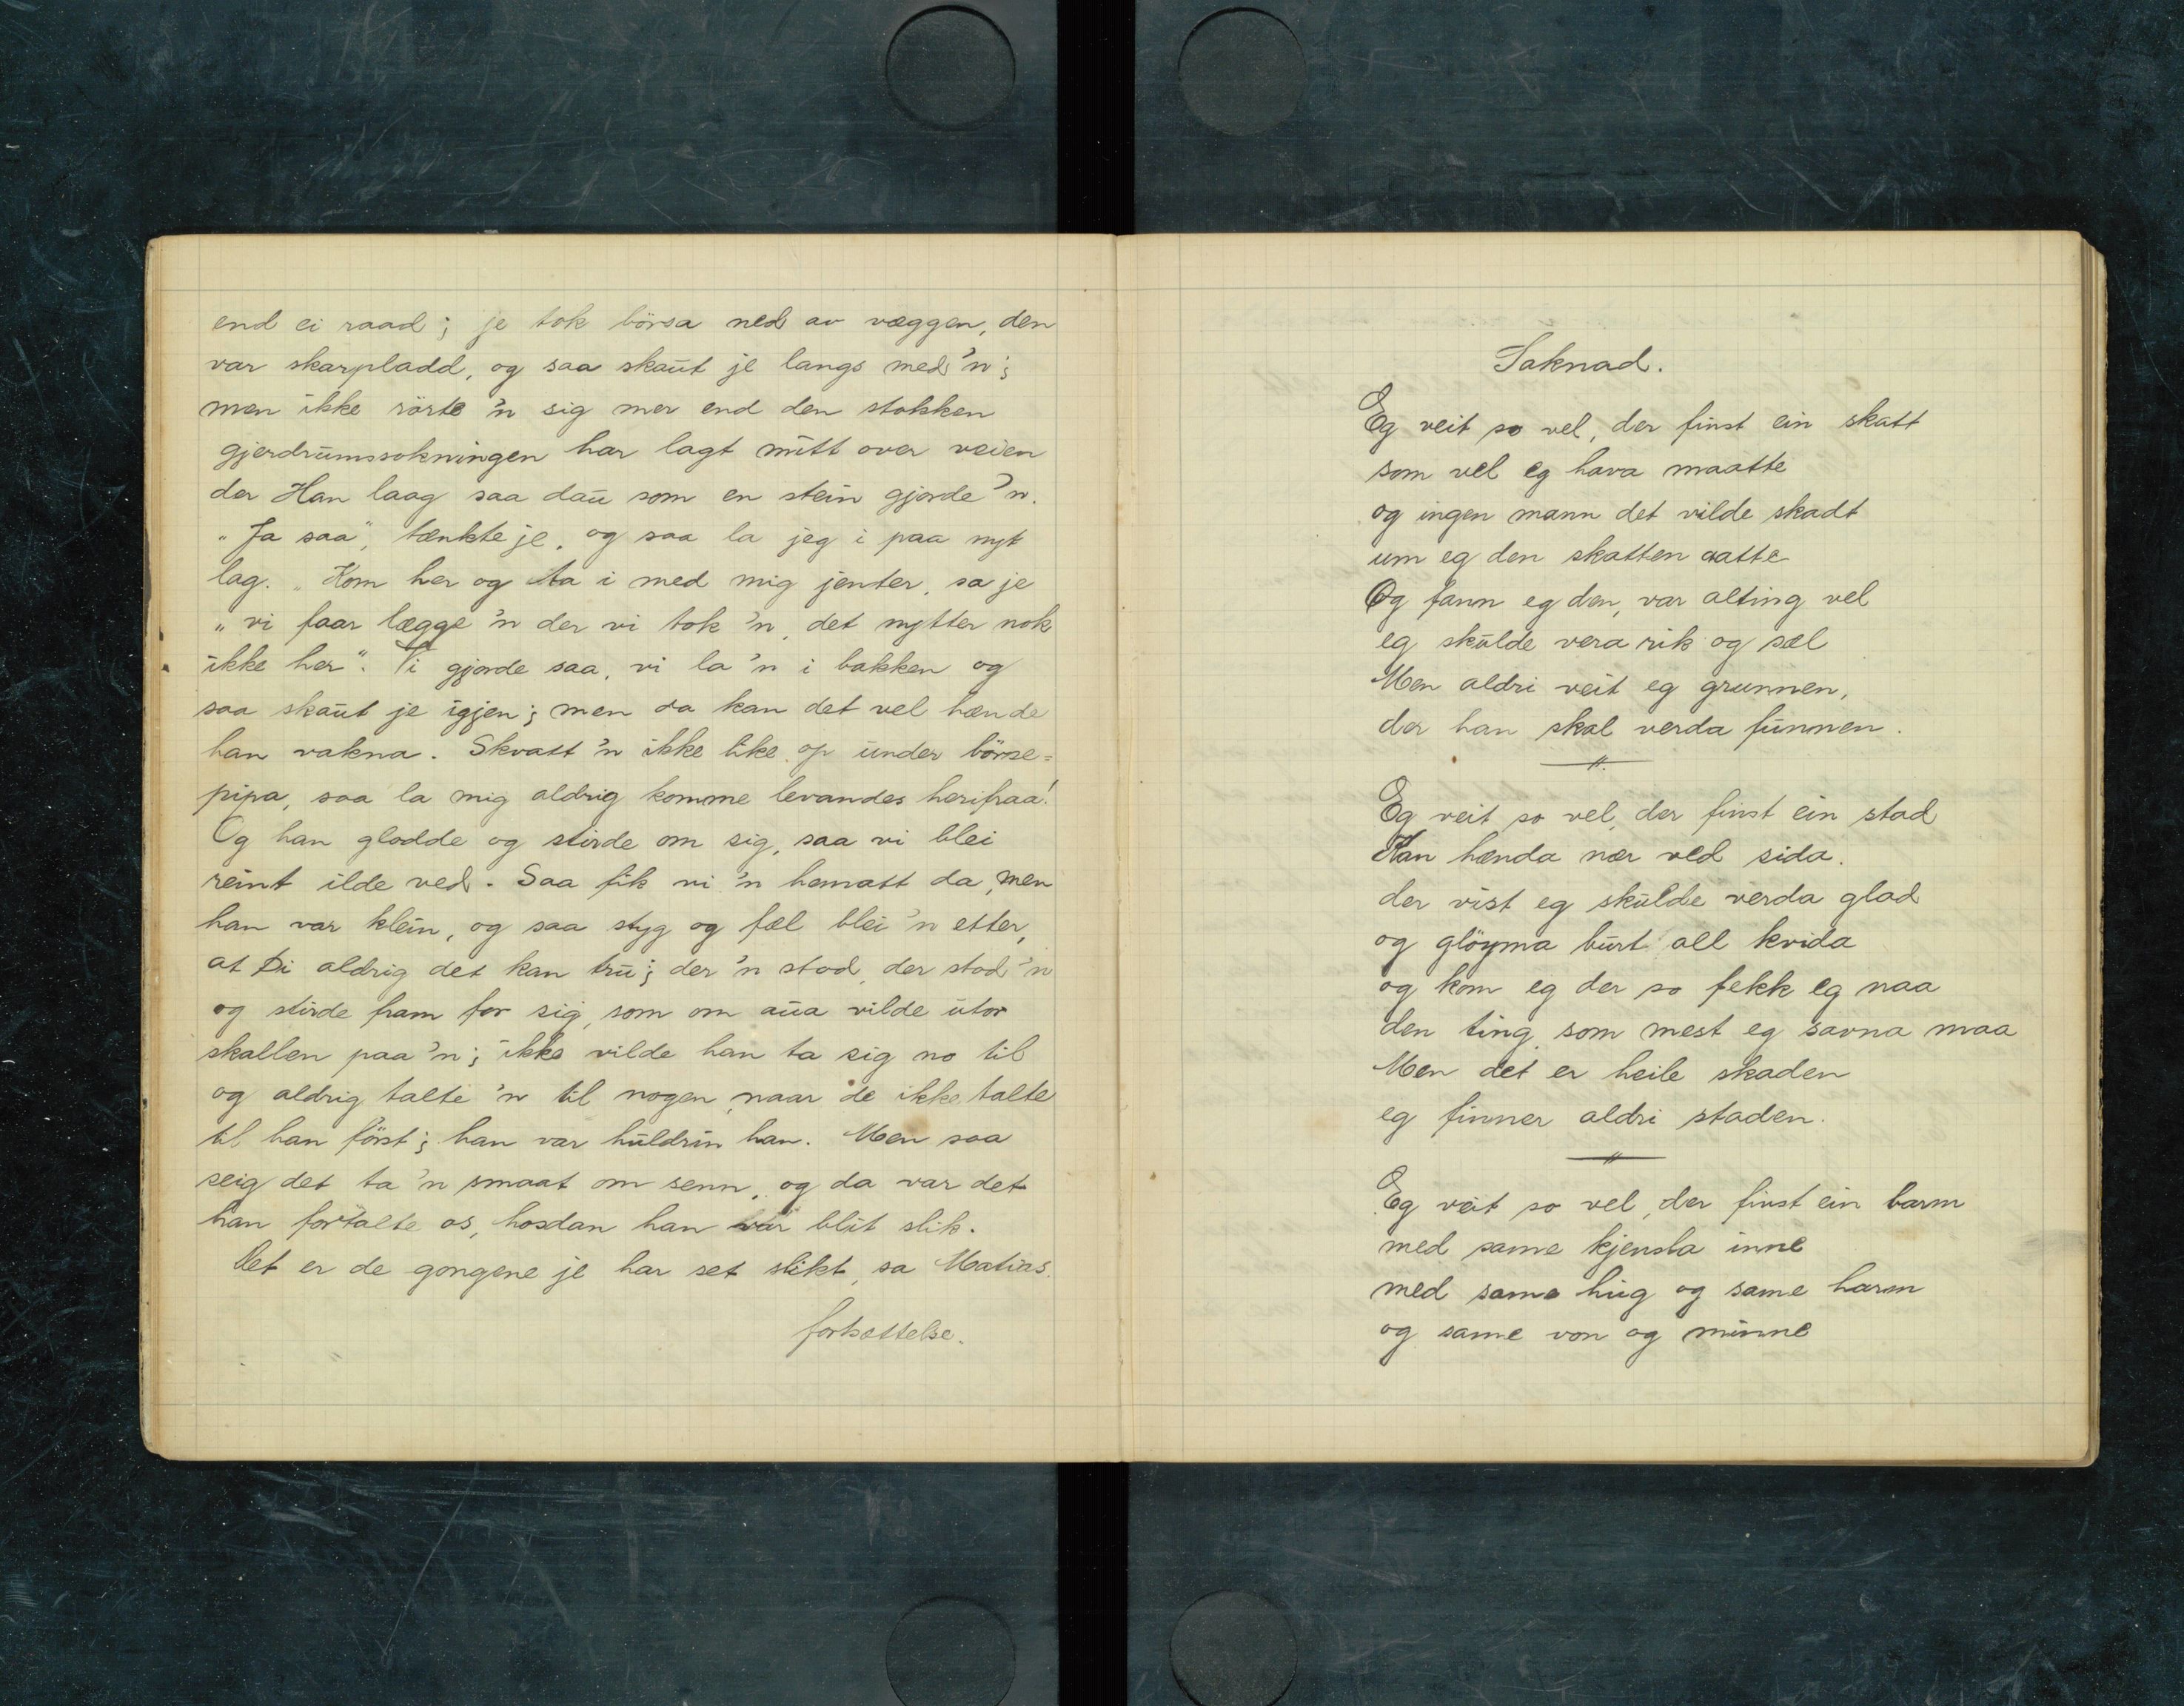 end ei raad; je tok börsa ned av væggen, den
var skarpladd, og saa skaut je langs med 'n;
men ikke rörte 'n sig mer end den stokken
gjerdrumssokningen har lagt mitt over veien
der Han laag saa dau som en stein gjorde 'n.
"Ja saa", tænkte je, og saa la jeg i paa nyt
lag. "Kom her og ta i med mig jenter, sa je
"vi faar lægge 'n der vi tok 'n, det nytter nok
ikke her". Vi gjorde saa, vi la 'n i bakken og
saa skaut je igjen; men da kan det vel hænde
han vakna. Skvatt 'n ikke like op under börse=
pipa, saa la mig aldrig komme levandes herifraa!
Og han glodde og stirde om sig, saa vi blei
reint ilde ved. Saa fik vi 'n hematt da, men
han var klein, og saa styg og fæl blei 'n etter,
at Di aldrig det kan tru; der 'n stod, der stod 'n
og stirde fram for sig, som om aua vilde utor
skallen paa 'n; ikke vilde han ta sig no til
og aldrig talte 'n til nogen, naar de ikke talte
til han först; han var huldrin han. Men saa
seig det ta 'n smaat om senn, og da var det
han fortalte os, hosdan han var blit slik.
Det er de gongene je har set slikt, sa Matias.
fortsættelse.
Saknad.
Eg veit so vel, der finst ein skatt
som vel eg hava maatte
og ingen mann det vilde skadt
um eg den skatten aatte
Og fann eg den, var alting vel
eg skulde vera rik og sæl
Men aldri veit eg grunnen,
der han skal verda funnen.
Eg veit so vel, der finst ein stad
Kan hænda nær ved sida.
der vist eg skulde verda glad
og glöyma burt all kvida
og kom eg der so fekk eg naa
den ting som mest eg savna maa
Men det er heile skaden
eg finner aldri staden.
Eg veit so vel, der finst ein barm
med same kjensla inne
med same hug og same harm
og same von og minne